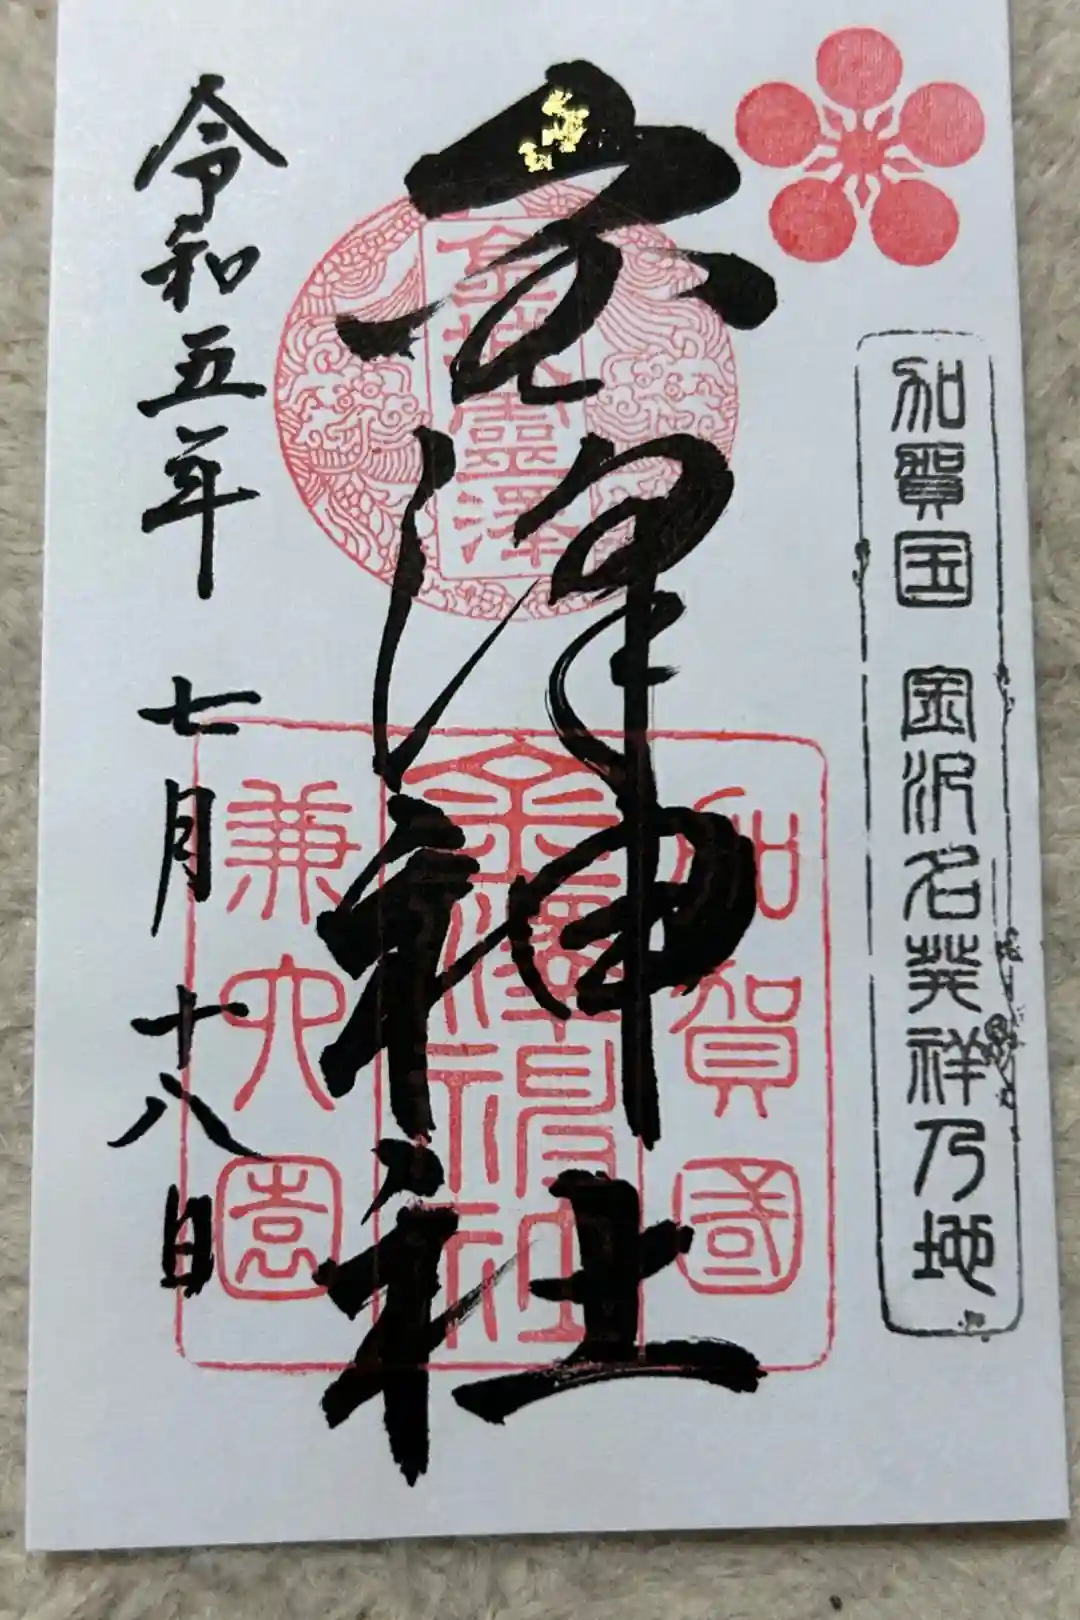 加賀国 金沢名発祥乃地
金澤神社
金城霊澤
加賀國
金澤神社
兼六園
令和五年 七月十八日